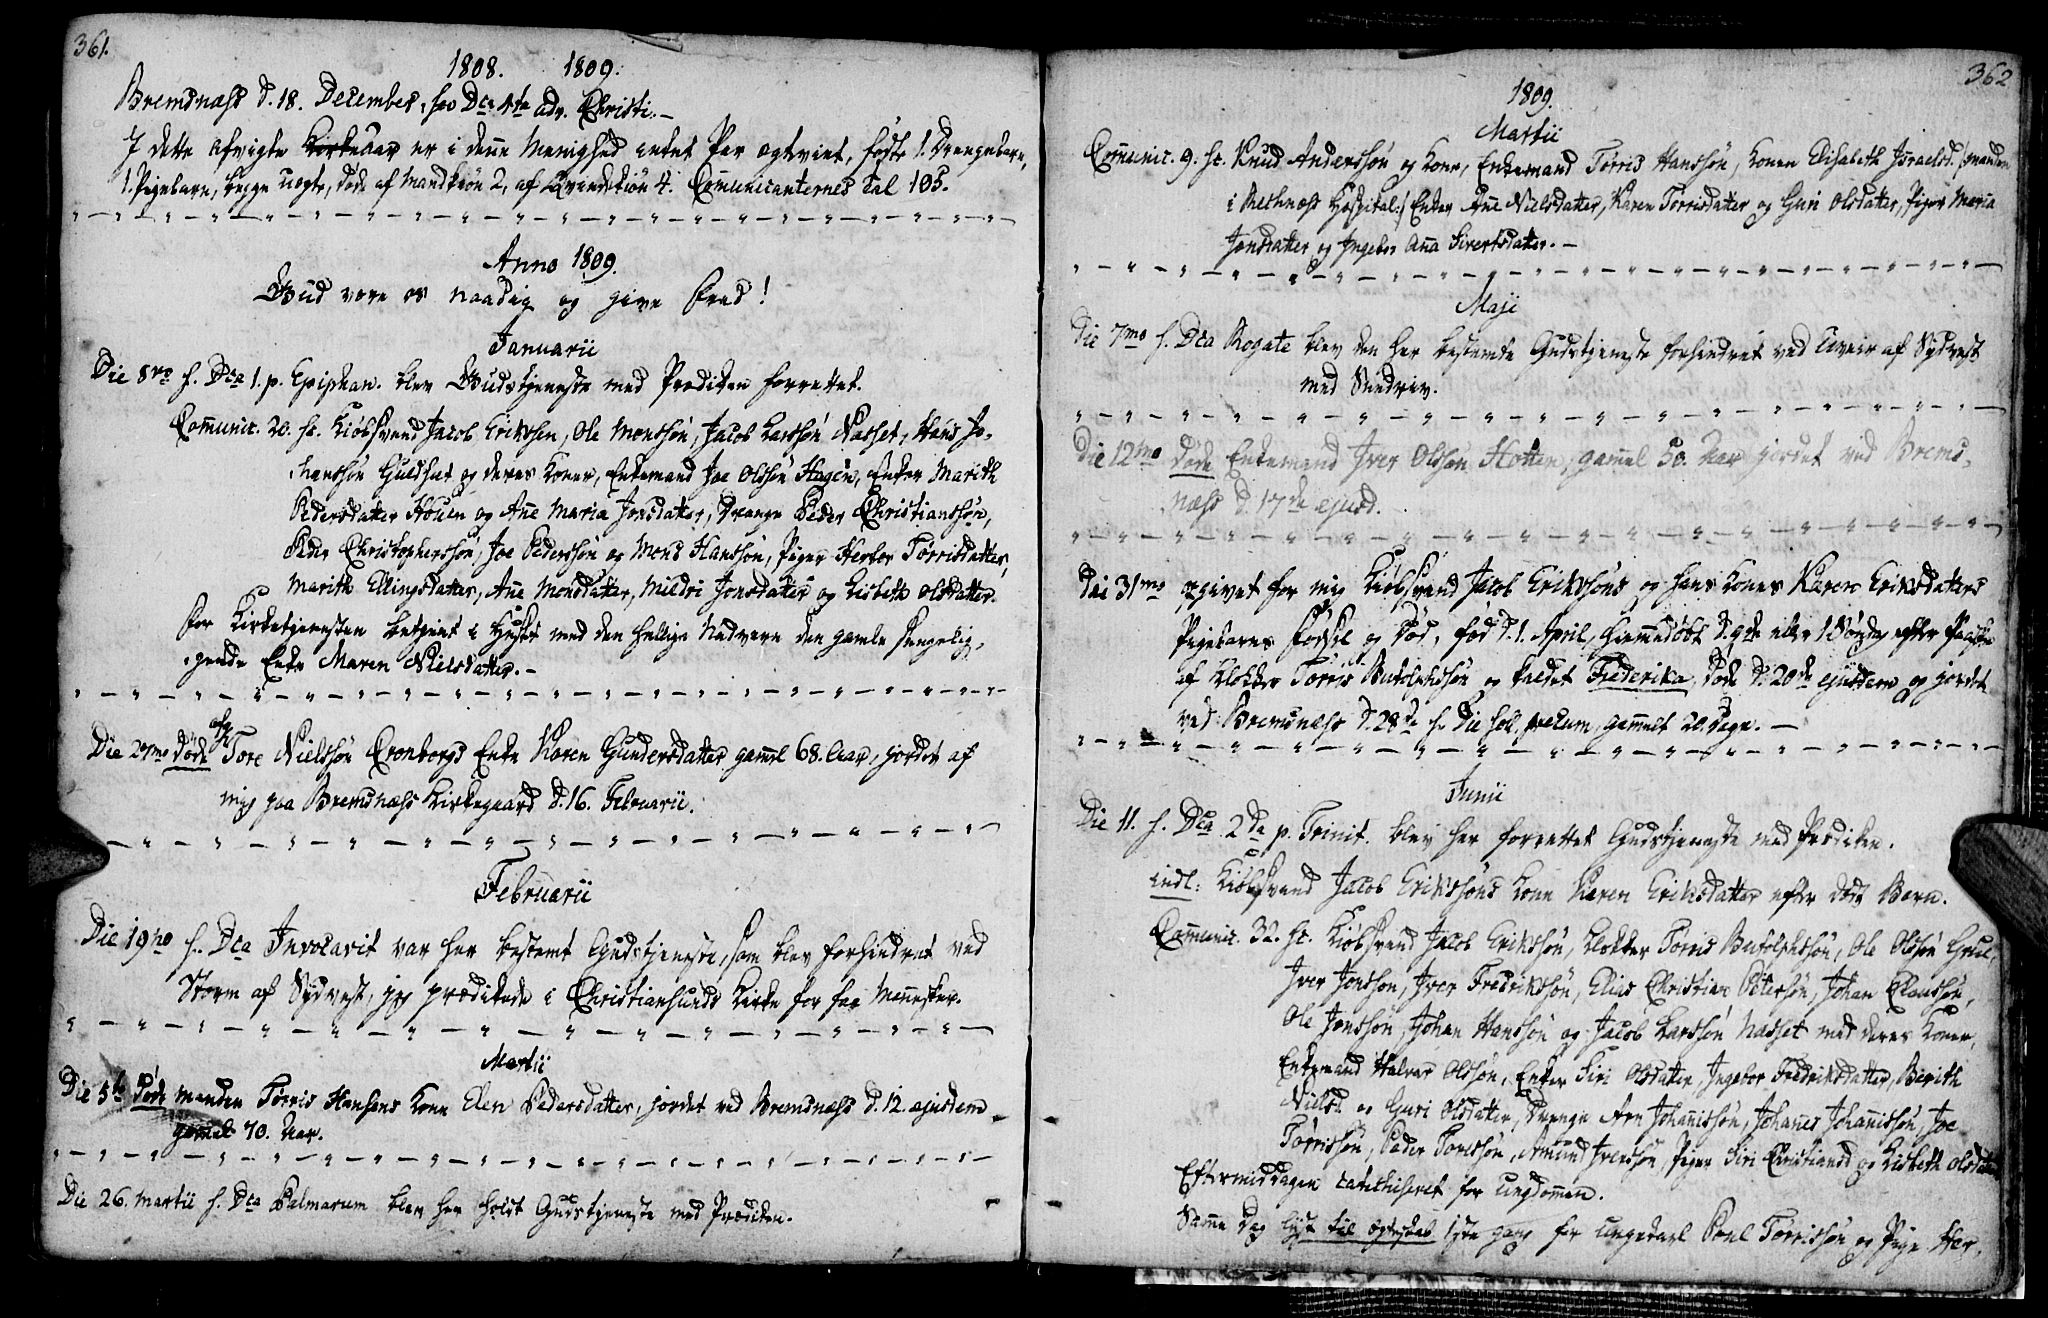 361.
1808. 1809.
Bremsnæss d. 18. December, s. Dca 4ta adv. Christi. –
I dette afvigte Kirkeaar er i denne Menighed intet Par egteviet, fødte 1. Drengebarn,
1. Pigebarn, begge uegte, døde af Mandkiøn 2, af Qvindekiøn 4. Communicanternes tal 105.
Anno 1809.
Gud være os naadig og give Fred!
Januarii
Die 8vo s. Dca 1. p. Epiphan. blev Gudstjeneste med Prediken forrettet.
Communic. 20. sc. Kiøbsvend Jacob Erikssen, Ole Monssøn, Jacob Larssøn Nasset, Hans Jo-
hanssøn Guldhut og deres Koner, Enkemand Joe Olssøn Hagen, Enker Marith
Pedersdatter Houen og Ane Maria Jonsdatter, Drenge Peder Christianssøn,
Peder Christopherssøn, Joe Pederssøn og Mons Hanssøn, Piger Herbor Tørrisdatter,
Marith Ellingsdatter, Ane Monsdatter, Mildri Jonsdatter og Lisbeth Olsdatter.
For Kirketjenesten betjent i Huset med den hellige Nadvere den gamle sengelig-
gende Enke Maren Nielsdatter. –
Die 27mo døde afg. Tore Nielssøn Cronborgs Enke Karen Gundersdatter gaml 68. Aar, jordet af
mig paa Bremsnæss Kirkegaard d. 16. Februarii.
Februarii
Die 19no s. Dca Invocavit var her bestemt Gudstjeneste, som blev forhindret ved
Storm af Sydvest, jeg prædikede i Christiansunds Kirke for faa Mennesker.
Martii
Die 5te døde manden Tørris Hansens Kone Elen Pedersdatter, jordet ved Bremsnæss d. 12. ejusdem
gamel 70. Aar.
Die 26. Martii s. Dca Palmarum blev her holdt Gudstjeneste med Prædiken.
362
1809.
Martii
Communic. 9. sc. Knud Anderssøn og Kone, Enkemand Tørris Hanssøn, Konen Elisabeth Israelsd. /: manden
i Hospital :/ Enker Ane Nielsdatter, Karen Tørrisdatter og Guri Olsdatter, Piger Maria
Jonsdatter og Ingebor Ana Sivertsdatter. –
Maji
Die 7mo s. Dca Rogate blev den her bestemte Gudstjeneste forhindret ved Uveir af Sydvest
med Sneedriv.
Die 12mo døde Enkemand Iver Olssøn Hotten, gammel 50. Aar jordet ved Brems-
næss d. 17de ejusd.
Die 31mo opgivet for mig Kiøbsvend Jacob Erikssøns og hans Kones Karen Eriksdatters
Pigebarns Fødsel og Død, fød d. 1. April, hiemmedøbt d. 9de eller 1 Søndag efter Paaske
af Klokker Tørris Butolphssøn og kaldet Frederika, døde d. 20de ejusdem og jordet
ved Bremsnæss d. 28de s. Die precum, gammelt 20. Dage. –
Junii
Die 11. s. Dca 2da p. Trinit. blev her forrettet Gudstjeneste med Prediken.
indl: Kiøbsvend Jacob Erikssøns Kone Karen Eriksdatter efter dødt Barn.
Communic. 32. sc. Kiøbsvend Jacob Erikssøn, Klokker Tørris Butolphssøn, Ole Olssøn
Iver Jonssøn, Iver Fredrikssøn, Elias Christian Peterssøn, Johan Clausssøn,
Ole Jonssøn, Johan Hanssøn og Jacob Larssøn Nasset med deres Koner,
Enkemand Halvor Olssøn, Enker Siri Olsdatter, Ingebor Fredriksdatter, Berith
Nielsd. og Guri Olsdatter, Drenge Arn Johannissøn, Johanes Johanissøn, Joe
Tørrissøn, Peder Toressøn, Amund Iverssøn, Piger Siri Christiansd. og Lisbeth Olsdatter
Eftermiddagen catechiseret for Ungdommen.
Samme Dag lyst til egteskab 1ste gang for Ungekarl Poul Tørrissøn og Pige Her-